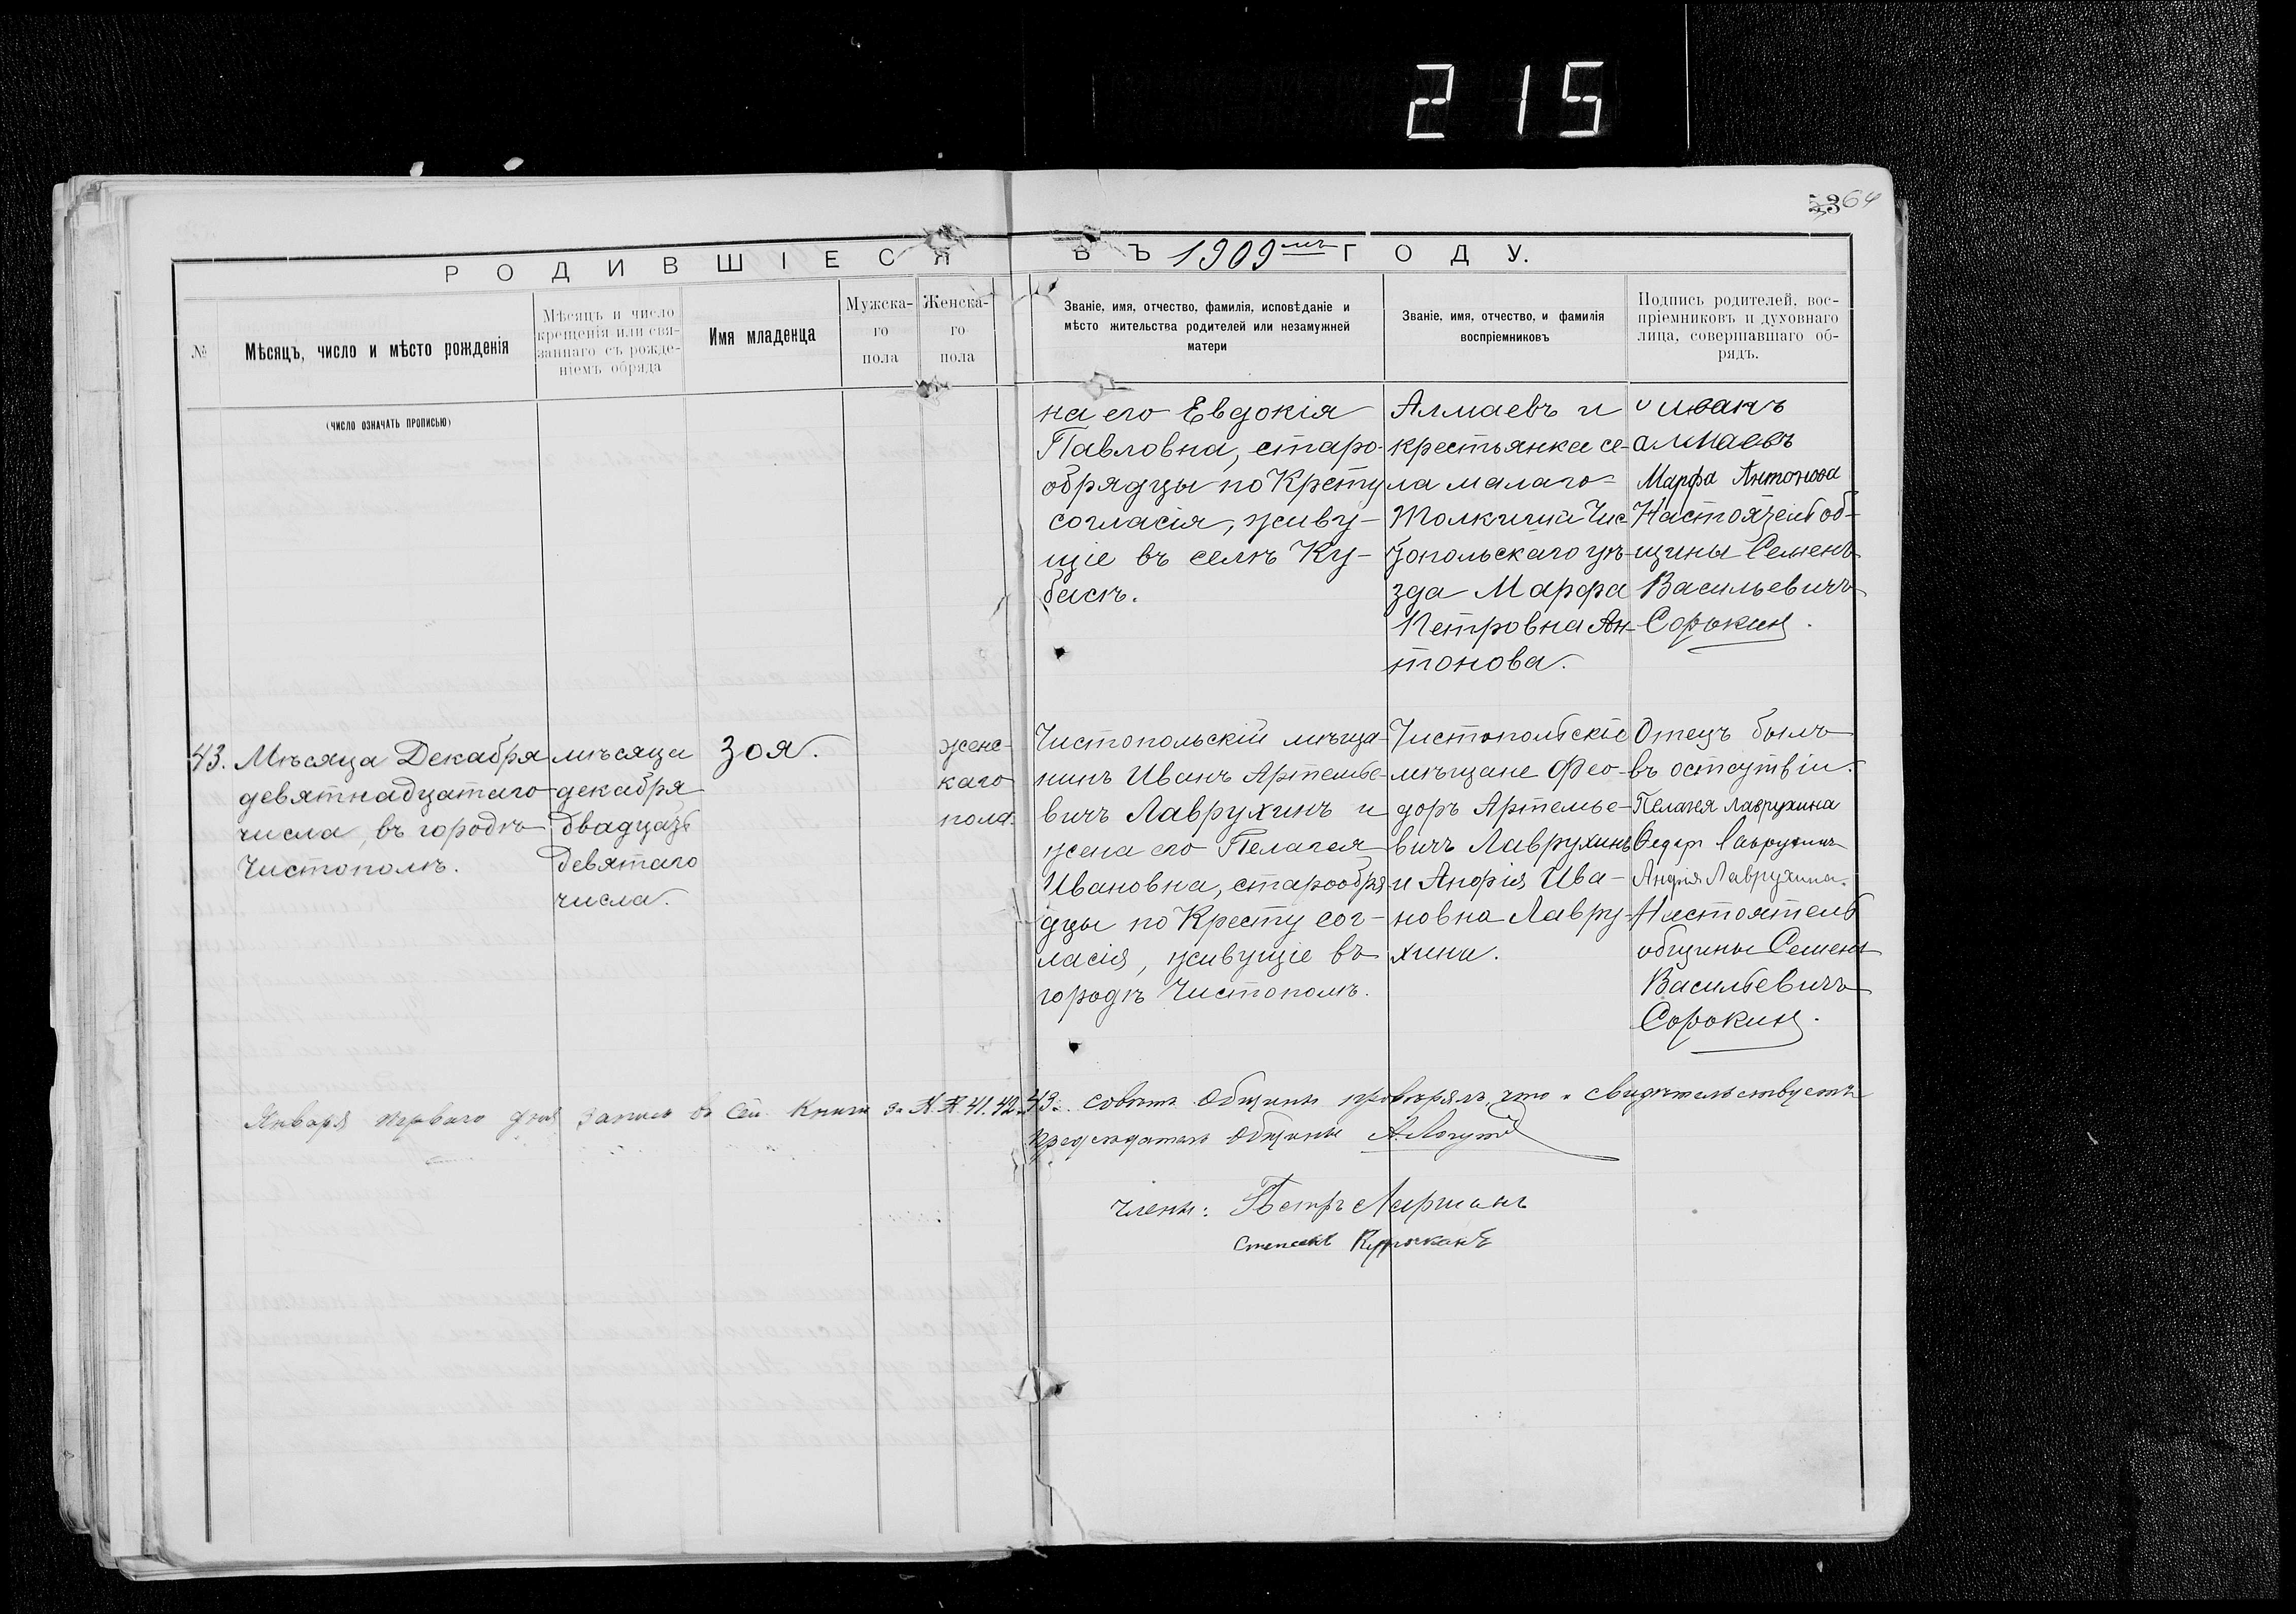 215
53 64
РОДИВШІЕСЯ ВЪ 1909мъ ГОДУ.
№
Мѣсяцъ, число и мѣсто рожденія
Мѣсяцъ и число
крещенія или свя-
заннаго съ рожде-
ніемъ обряда
Имя младенца
Мужска-
го
пола
Женска-
го
пола
Званіе, имя, отчество, фамилія, исповѣданіе и
мѣсто жительства родителей или незамужней
матери
Званіе, имя, отчество, и фамилія
воспріемниковъ
Подпись родителей, вос-
пріемниковъ и духовнаго
лица, совершавшаго об-
рядъ.
(число означать прописью)
на его Евдокія
Павловна, старо-
обрядцы по Кресту
согласія, живу-
щіе въ селѣ Ку-
басѣ.
Алмаевъ и
крестьянка се-
ла малаго
Толкиша Чис-
топольскаго уѣ-
зда Марфа
Петровна Ан-
тонова.
Иванъ
алмаевъ
Марфа Антонова
Настоятель об-
щины Семенъ
Васильевичъ
Сорокин.
43.
Мѣсяца Декабря
девятнадцатаго
числа, въ городѣ
Чистополѣ.
мѣсяца
декабря
двадцать
девятаго
числа.
Зоя.
женс-
каго
пола.
Чистопольскій мѣща-
нинъ Иванъ Артемье-
вичъ Лаврухинъ и
жена его Пелагея
Ивановна, старообря-
дцы по Кресту сог-
ласія, живущіе въ
городѣ Чистополѣ.
Чистопольскіе
мѣщане Фео-
доръ Артемье-
вичъ Лаврухинъ
и Анфія Ива-
новна Лавру-
хина.
Отецъ былъ
въ остсутвіи.
Пелагея Лаврухина
Федоръ Лаврухинъ
Анфія Лаврухина.
Настоятель
общины Семенъ
Васильевичъ
Сорокин.
Января перваго дня запись въ сей Книги за №№ 41. 42. 43. совѣтъ Общины провѣрялъ, что и свидѣтельствуетъ
Председатель Общины А.
Члены: Петръ